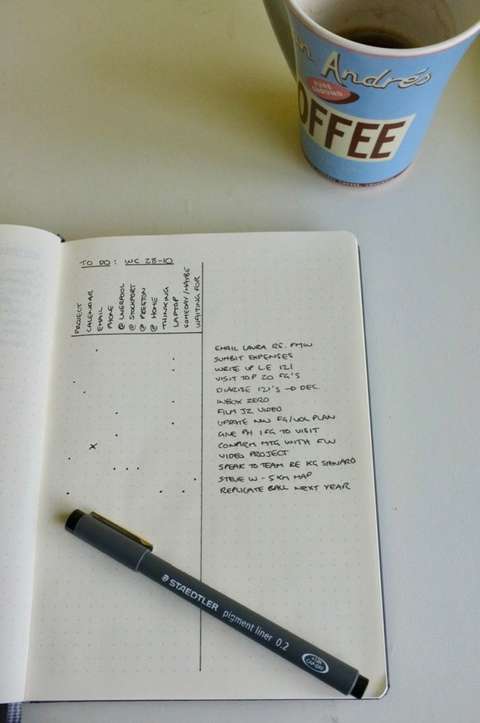 n Andrés
COFFEE
TO DO: WC 28-10
PROJECT
CALENDAR
EMAIL
PHONE
@ LIVERPOOL
@ STOCKPORT
@ PRESTON
@ HOME
THINKING
LAPTOP
SOMEDAY/MAYBE
WAITING FOR
EMAIL LAURA RE. PMW
SUMBIT EXPENSES
WRITE UP LE 121
VISIT TOP 20 FG'S
DIARISE 121'S → DEC
INBOX ZERO
FILM J2 VIDEO
UPDATE NW FG/VOL PLAN
GIVE PH 1 FG TO VISIT
CONFIRM MTG WITH FW
VIDEO PROJECT
SPEAK TO TEAM RE KG STANDARD
STEVE W - 5KM MAP
REPLICATE BALL NEXT YEAR
STAEDTLER pigment liner 0.2